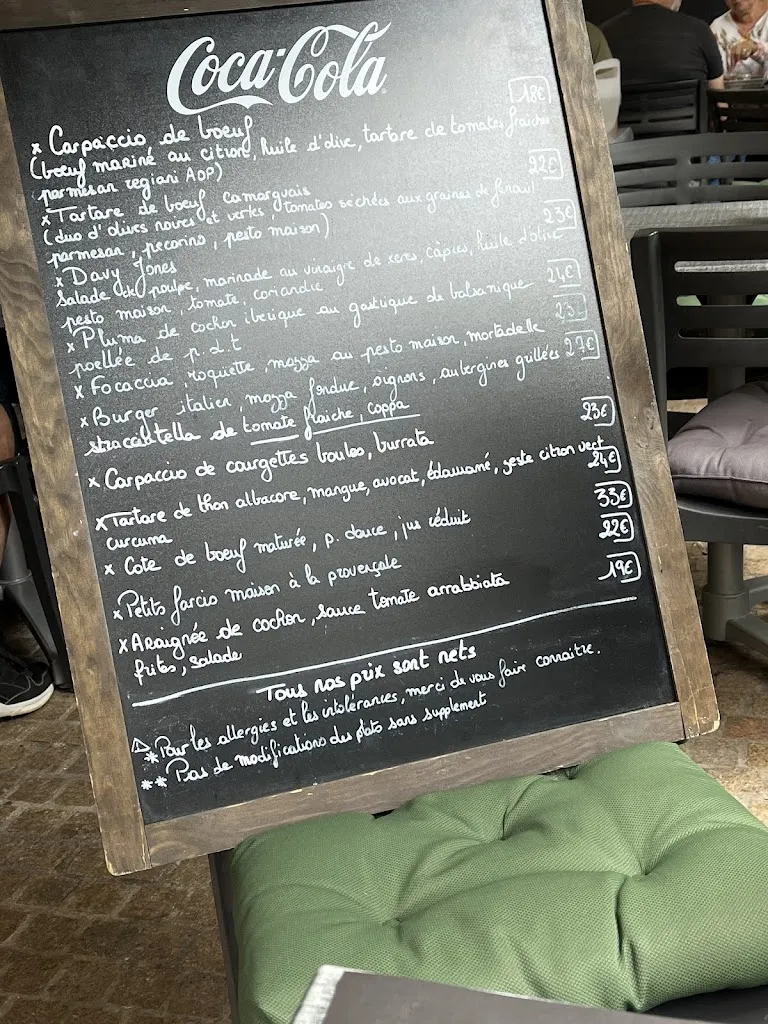 Coca-Cola
x Carpaccio de boeuf 18€
(boeuf mariné au citron, huile d'olive, tartare de tomates fraiches
parmesan regiani AOP)
x Tartare de boeuf camarguais 22€
(duo d'olives noires et vertes, tomates séchées aux graines de fenouil
parmesan, pecorino, pesto maison)
x Davy Jones 23€
Salade de poulpe, marinade au vinaigre de xeres, câpres, huile d'olive
pesto maison, tomate, coriandre
x Pluma de cochon iberique au gastrique de balsamique 24€
poellée de p.d.t
x Focaccia roquette, mozza au pesto maison, mortadelle 23
x Burger italien, mozza fondue, oignons, aubergines grillées 27€
stracciatella de tomate fraiche, coppa
x Carpaccio de courgettes boules, burrata 23€
x Tartare de thon albacore, mangue, avocat, édamamé, zeste citron vert 24€
curcuma
x Cote de boeuf maturée, p. douce, jus réduit 33€
x Petits farcis maison à la provençale 22€
x Araignée de cochon, sauce tomate arrabbiata 19€
frites, salade
Tous nos prix sont nets
* Pour les allergies et les intolérances, merci de vous faire connaitre.
** Pas de modifications des plats sans supplement